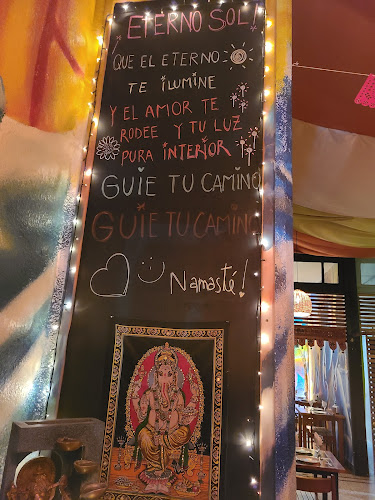 ¡ETERNO SOL!
QUE EL ETERNO
TE ILUMINE
Y EL AMOR TE
RODEE Y TU LUZ
PURA INTERIOR
GUIE TU CAMINO
GUIE TU CAMINO
Namasté!